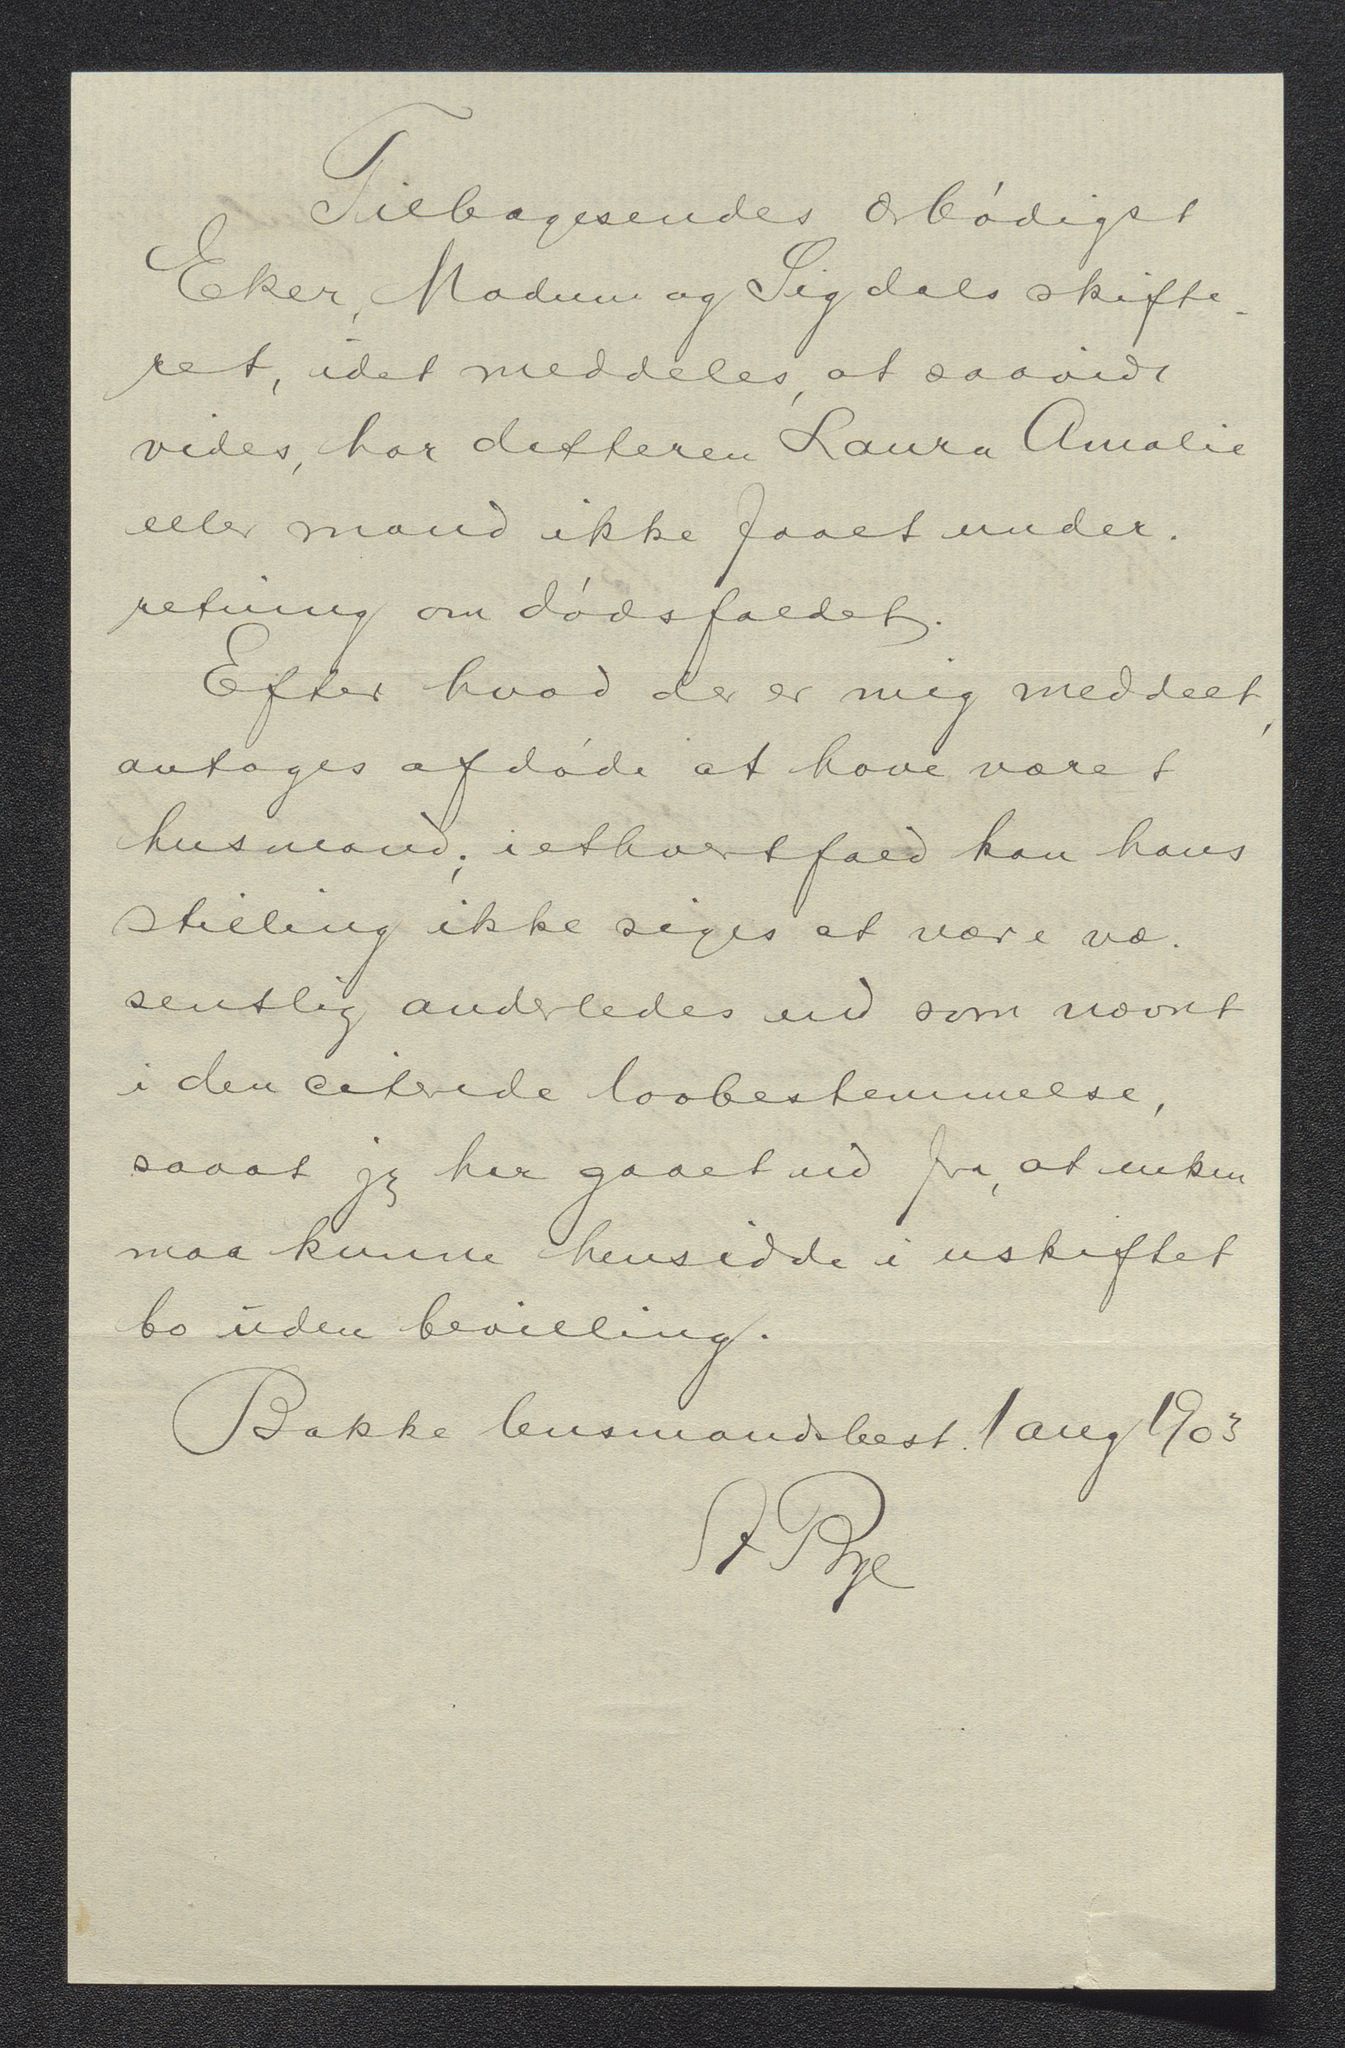 Tilbagesendes ærbødigst
Eker, Modum og Sigdals skifte-
ret, idet meddeles, at saavidt
vides, har datteren Laura Amalie
eller mand ikke faaet under-
retning om dødsfaldet.
Efter hvad der er mig meddelt,
antages afdøde at have været
husmand; i ethvertfald kan hans
stilling ikke siges at være væ-
sentlig anderledes end som nævnt
i den citerede lovbestemmelse,
saaat jeg har gaaet ud fra, at enken
maa kunne hensidde i uskiftet
bo uden bevilling.
Bakke lensmandsbest. 1 aug 1903
St Bye